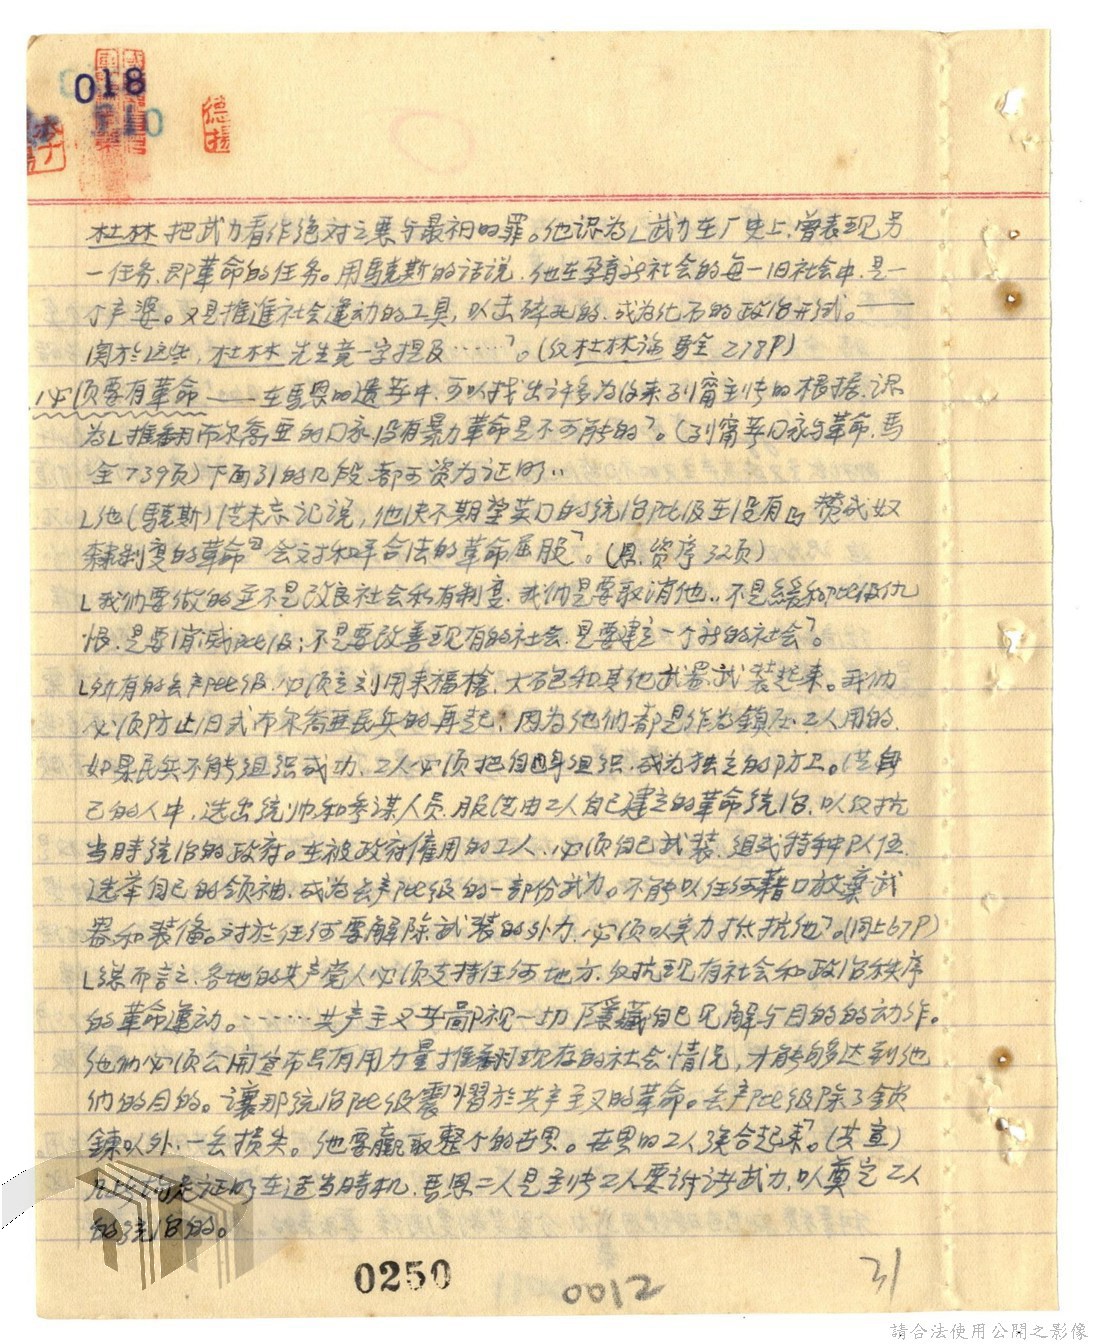 018
010
德揚
杜林把武力看作绝对之禀与最初的罪。他认为L武力在厂史上,曾表现另
一任务,即革命的任务。用馬克斯的话说,他在孕育新社会的每一旧社会中,是一
个产婆。又是推進社会運动的工具,以击碎死的,或为化石的政治形式。——
関於这些,杜林先生竟一字提及……⁊。(反杜林論 馬全 278P)
1必须要有革命——在馬恩的遗著中,可以找出许多为後来列甯主张的根据,认
为L推翻布尔乔亚的口家,没有暴力革命是不可能的⁊。(列甯著口家与革命,馬
全739页)下面引的几段都可资为证明..
L他(馬克斯)從未忘记说,他决不期望英口的统治阶级在没有「赞成奴
隸制度的革命」会对和平合法的革命屈服⁊。(恩,资序32页)
L我们要做的並不是改良社会私有制度,我们是要取消他..不是緩和阶级仇
恨,是要消滅阶级;不是要改善现有的社会,是要建立一个新的社会⁊。
L所有的无产阶级,必须立刻用来福槍,大砲和其他武器武装起来。我们
必须防止旧式布尔乔亚民兵的再起;因为他们都是作为鎮压工人用的,
如果民兵不能组织成功,工人必须把自身组织,成为独立的防卫。從自
己的人中,选出统帅和参谋人员,服從由工人自己建立的革命统治,以反抗
当時统治的政府。在被政府僱用的工人,必须自己武装,组成特种队伍,
选举自己的领袖,成为无产阶级的一部份武力。不能以任何藉口放棄武
器和装备。对於任何要解除武装的外力,必须以实力抵抗他⁊。(同上67P)
L總而言之,各地的共产党人必须支持任何地方,反抗现有社会和政治秩序
的革命運动。……共产主义者鄙视一切隱藏自己见解与目的的动作。
他们必须公開宣布只有用力量推翻现存的社会情况,才能够达到他
们的目的。讓那统治阶级震慴於共产主义的革命。无产阶级除了鎖
鍊以外,一无损失。他要贏取整个的世界。世界的工人联合起来⁊。(共宣)
凡此均足证明在适当時机,馬恩二人是主张工人要诉诸武力,以奠定工人
的统治的。
0250
0012
31
請合法使用公開之影像